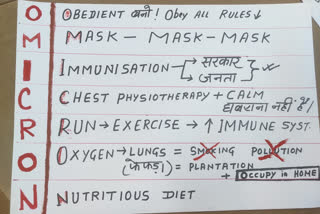 OBEDIENT बनो! Obey ALL RULES↓
MASK — MASK — MASK
IMMUNISATION → सरकार
→ जनता
CHEST PHYSIOTHERAPY + CALM
घबराना नहीं है।
RUN → EXERCISE → ↑ IMMUNE SYST.
OXYGEN → LUNGS = SMOKING POLLUTION
(फेफड़े) = PLANTATION
+ OCCUPY in HOME
NUTRITIOUS DIET